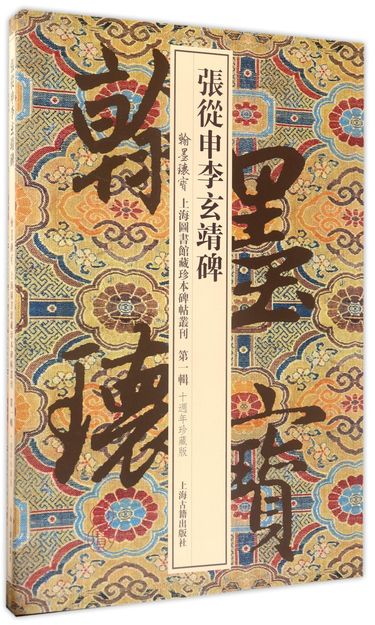 張從申李玄靖碑
翰墨瓌寶 上海圖書館藏珍本碑帖叢刊 第一輯 十週年珍藏版
上海古籍出版社
翰墨
瓌寶